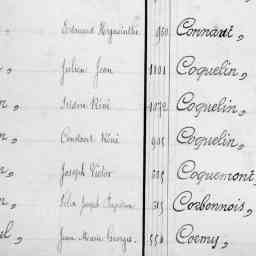 " Edouard Hyacinthe 960 Connart,
" Julien Jean 1101 Coquelin,
n, Isidore René 1072 Coquelin,
n, Constant René 905 Coquelin,
n, Joseph Victor 515 Coquemont,
n, Joseph 515 Corbonnois,
il, Jean Marie Georges. 550 Cormy,